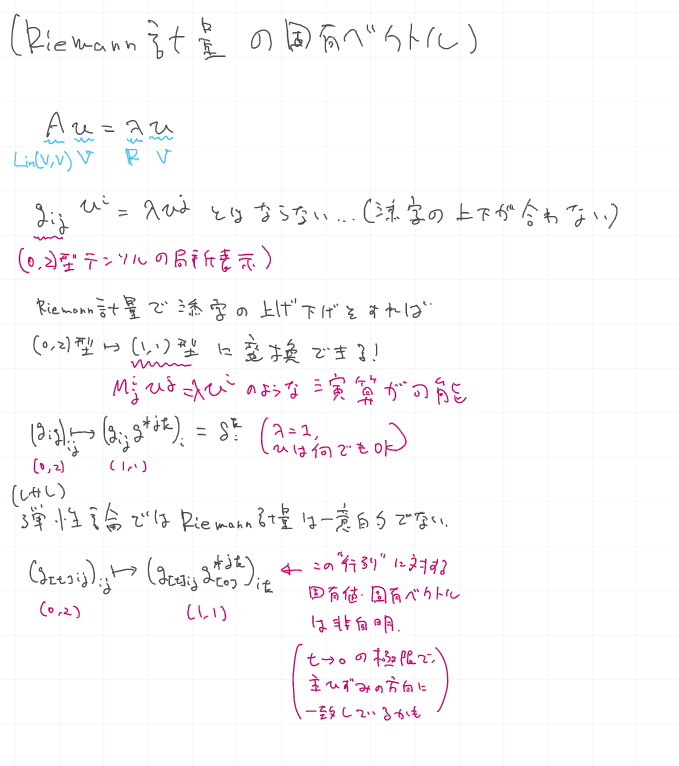 (Riemann計量 の固有ベクトル)
A u = λ u
Lin(V,V) V R V
g_{ij} u^i = λu^j とはならない...(添字の上下が合わない)
(0,2)型テンソルの局所表示)
Riemann計量で添字の上げ下げをすれば
(0,2)型 ↦ (1,1)型 に変換できる!
M^i_j u^j = λu^i のような演算が可能
(g_{ij})_{ij} ↦ (g_{ij} g^{*jk})_i^k = δ_i^k (λ=1,
uは何でもOK)
(0,2) (1,1)
(しかし)
弾性論ではRiemann計量は一意的でない.
(g_{[t]ij})_{ij} ↦ (g_{[t]ij} g_{[0]}^{*jk})_i^k ← この"行列"に対する
(0,2) (1,1) 固有値・固有ベクトル
は非自明.
(t→0の極限で,
主ひずみの方向に
一致しているかも)